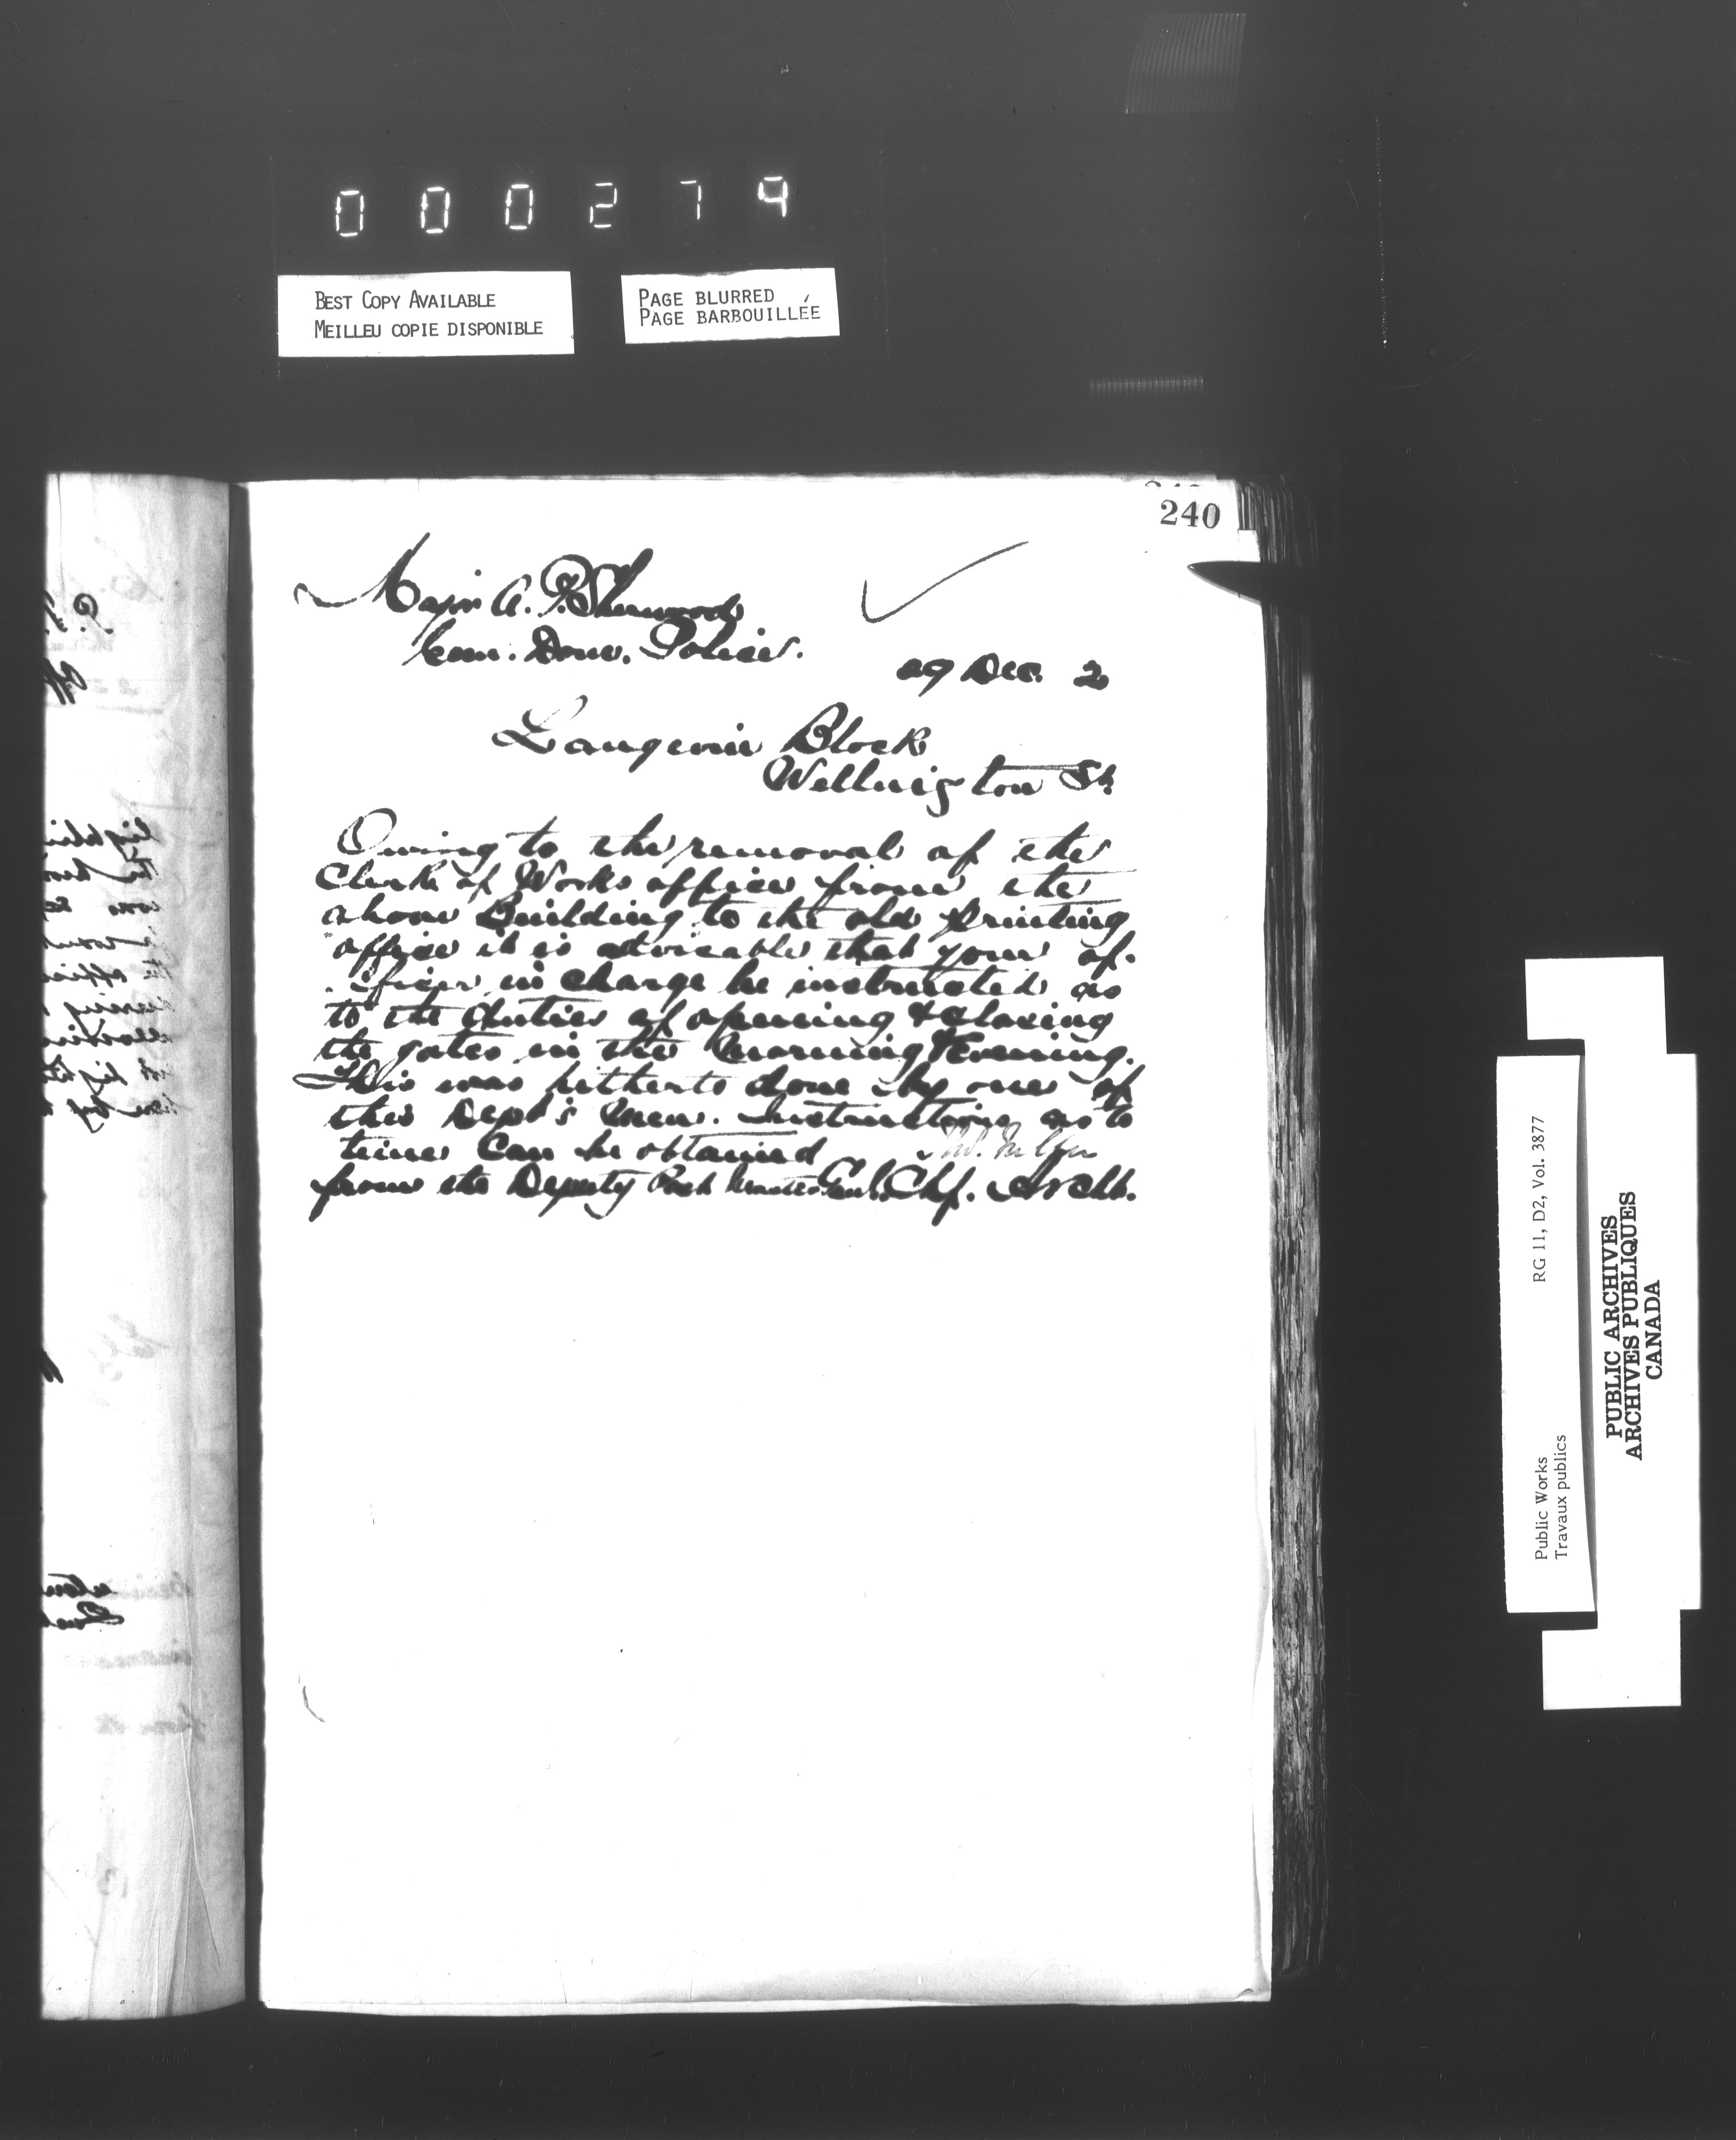 000279
BEST COPY AVAILABLE
MEILLEU COPIE DISPONIBLE
PAGE BLURRED
PAGE BARBOUILLÉE
240
Major A. P. Sherwood
Com. Dom. Police.
29 Dec. 2
Langevin Block
Wellington St.
Owing to the removal of the
Clerk of Works office from the
above Building to the old printing
office it is advisable that your of-
ficer in charge be instructed as
to the duties of opening & closing
the gates in the morning & Evening.
This was hitherto done by one of
this Dept's men. Instructions as to
time can be obtained
from the Deputy Post Master Genl.
Chf. Archt.
Public Works
Travaux publics
RG 11, D2, Vol. 3877
PUBLIC ARCHIVES
ARCHIVES PUBLIQUES
CANADA